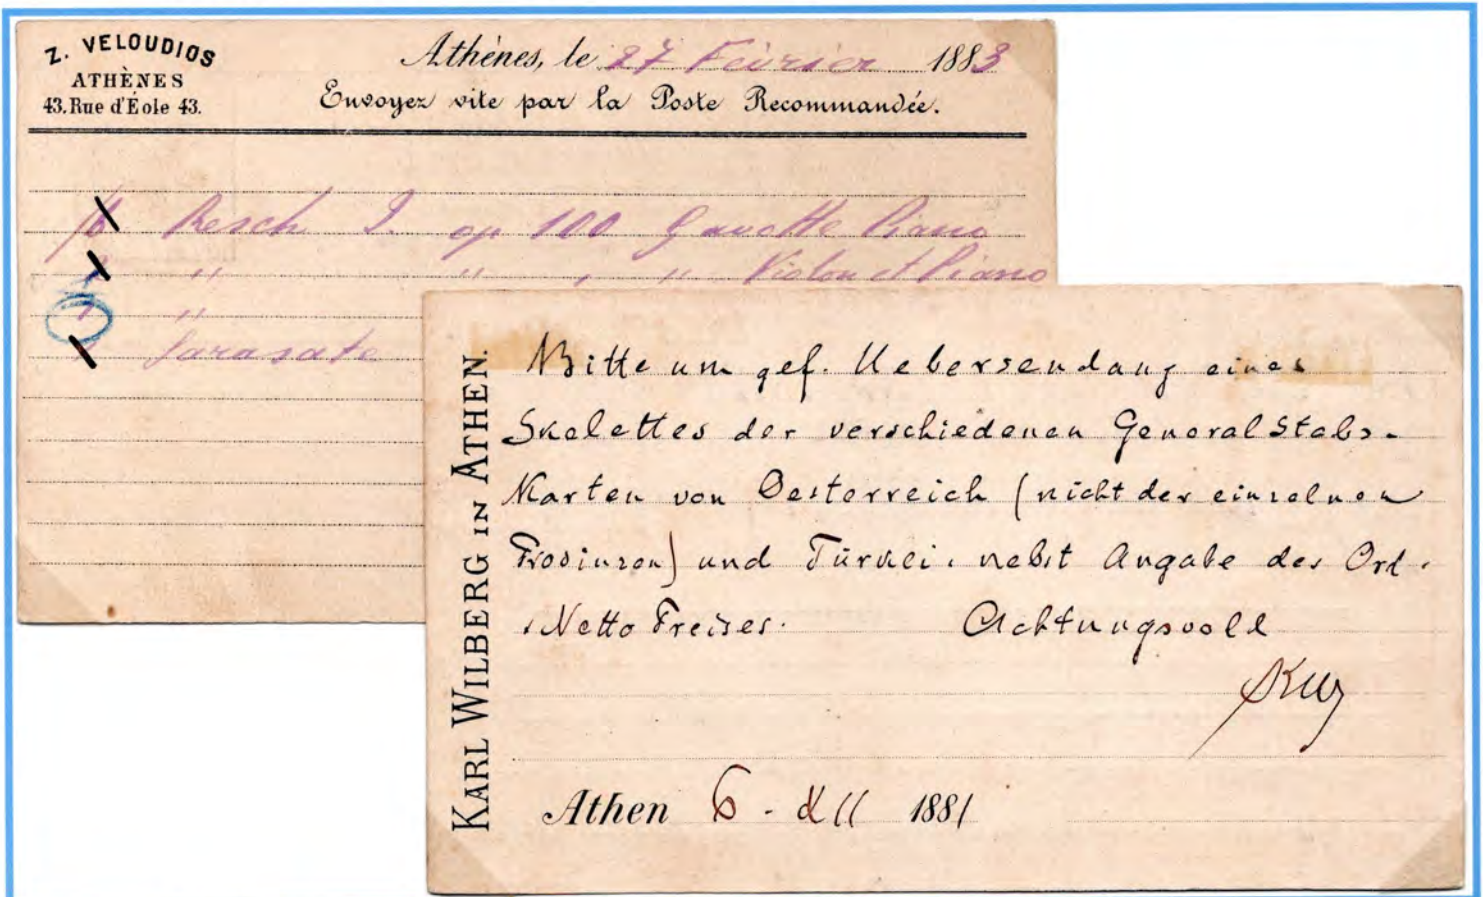 Z. VELOUDIOS
ATHÈNES
43. Rue d'Éole 43.
Athènes, le 27 Février 1883
Envoyez vite par la Poste Recommandée.
Resch J. op 100 Gavotte Piano
" " " " Violon et Piano
" "
Sarasate
KARL WILBERG IN ATHEN.
Bitte um gef. Uebersendung eines
Skelettes der verschiedenen Generalstabs-
Karten von Oesterreich (nicht der einzelnen
Provinzen) und Türkei. nebst Angabe des Ord.
. Netto Preises. Achtungsvoll
Athen 6 - XII 1881